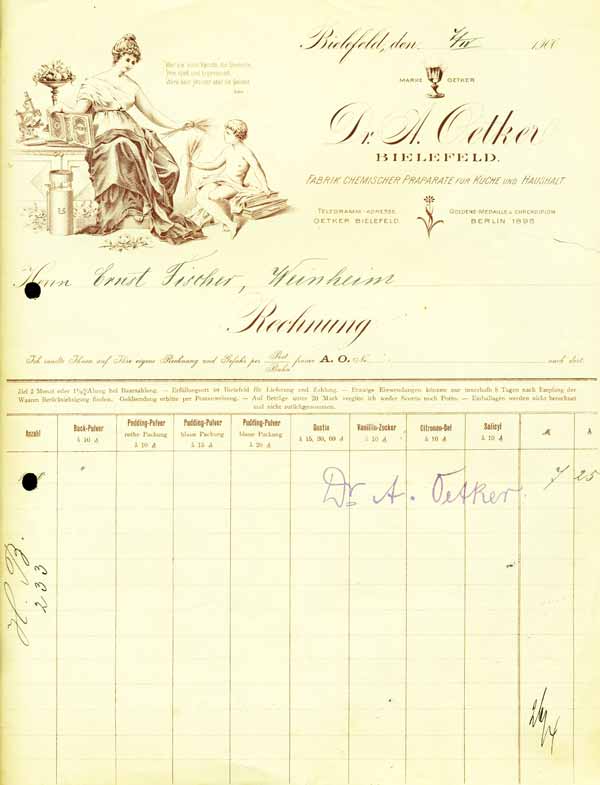 Bielefeld, den 190
MARKE OETKER
Dr. A. Oetker
BIELEFELD.
FABRIK CHEMISCHER PRÄPARATE FÜR KÜCHE UND HAUSHALT
TELEGRAMM-ADRESSE
OETKER BIELEFELD.
GOLDENE MEDAILLE u. EHRENDIPLOM
BERLIN 1898
Herrn Ernst Fischer, Weinheim
Rechnung
Ich sandte Ihnen auf Ihre eigene Rechnung und Gefahr per Post Bahn franco A. O. No. nach dort.
Ziel 2 Monat oder 1½% Abzug bei Baarzahlung. — Erfüllungsort ist Bielefeld für Lieferung und Zahlung. — Etwaige Einwendungen können nur innerhalb 8 Tagen nach Empfang der
Waaren Berücksichtigung finden. Geldsendung erbitte per Postanweisung. — Auf Beträge unter 20 Mark vergüte ich weder Sconto noch Porto. — Emballagen werden nicht berechnet
und nicht zurückgenommen.
Anzahl
Back-Pulver
à 10 ₰
Pudding-Pulver
rothe Packung
à 10 ₰
Pudding-Pulver
blaue Packung
à 15 ₰
Pudding-Pulver
blaue Packung
à 20 ₰
Gustin
à 15, 30, 60 ₰
Vanillin-Zucker
à 10 ₰
Citronen-Oel
à 10 ₰
Salicyl
à 10 ₰
M
₰
Dr. A. Oetker.
7 25
H. B.
233